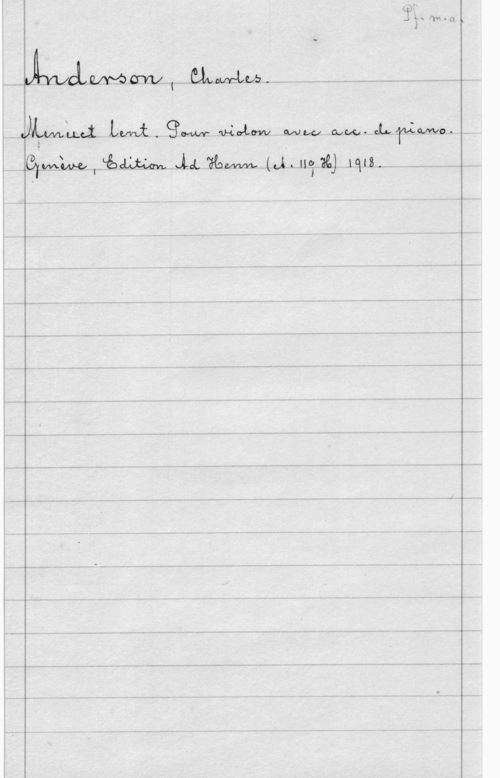 Pf. m. a.
Anderson, Charles.
Menuet lent. Pour violon avec acc. de piano.
Genève, Edition Ad Henn (A. 119 H) 1918.